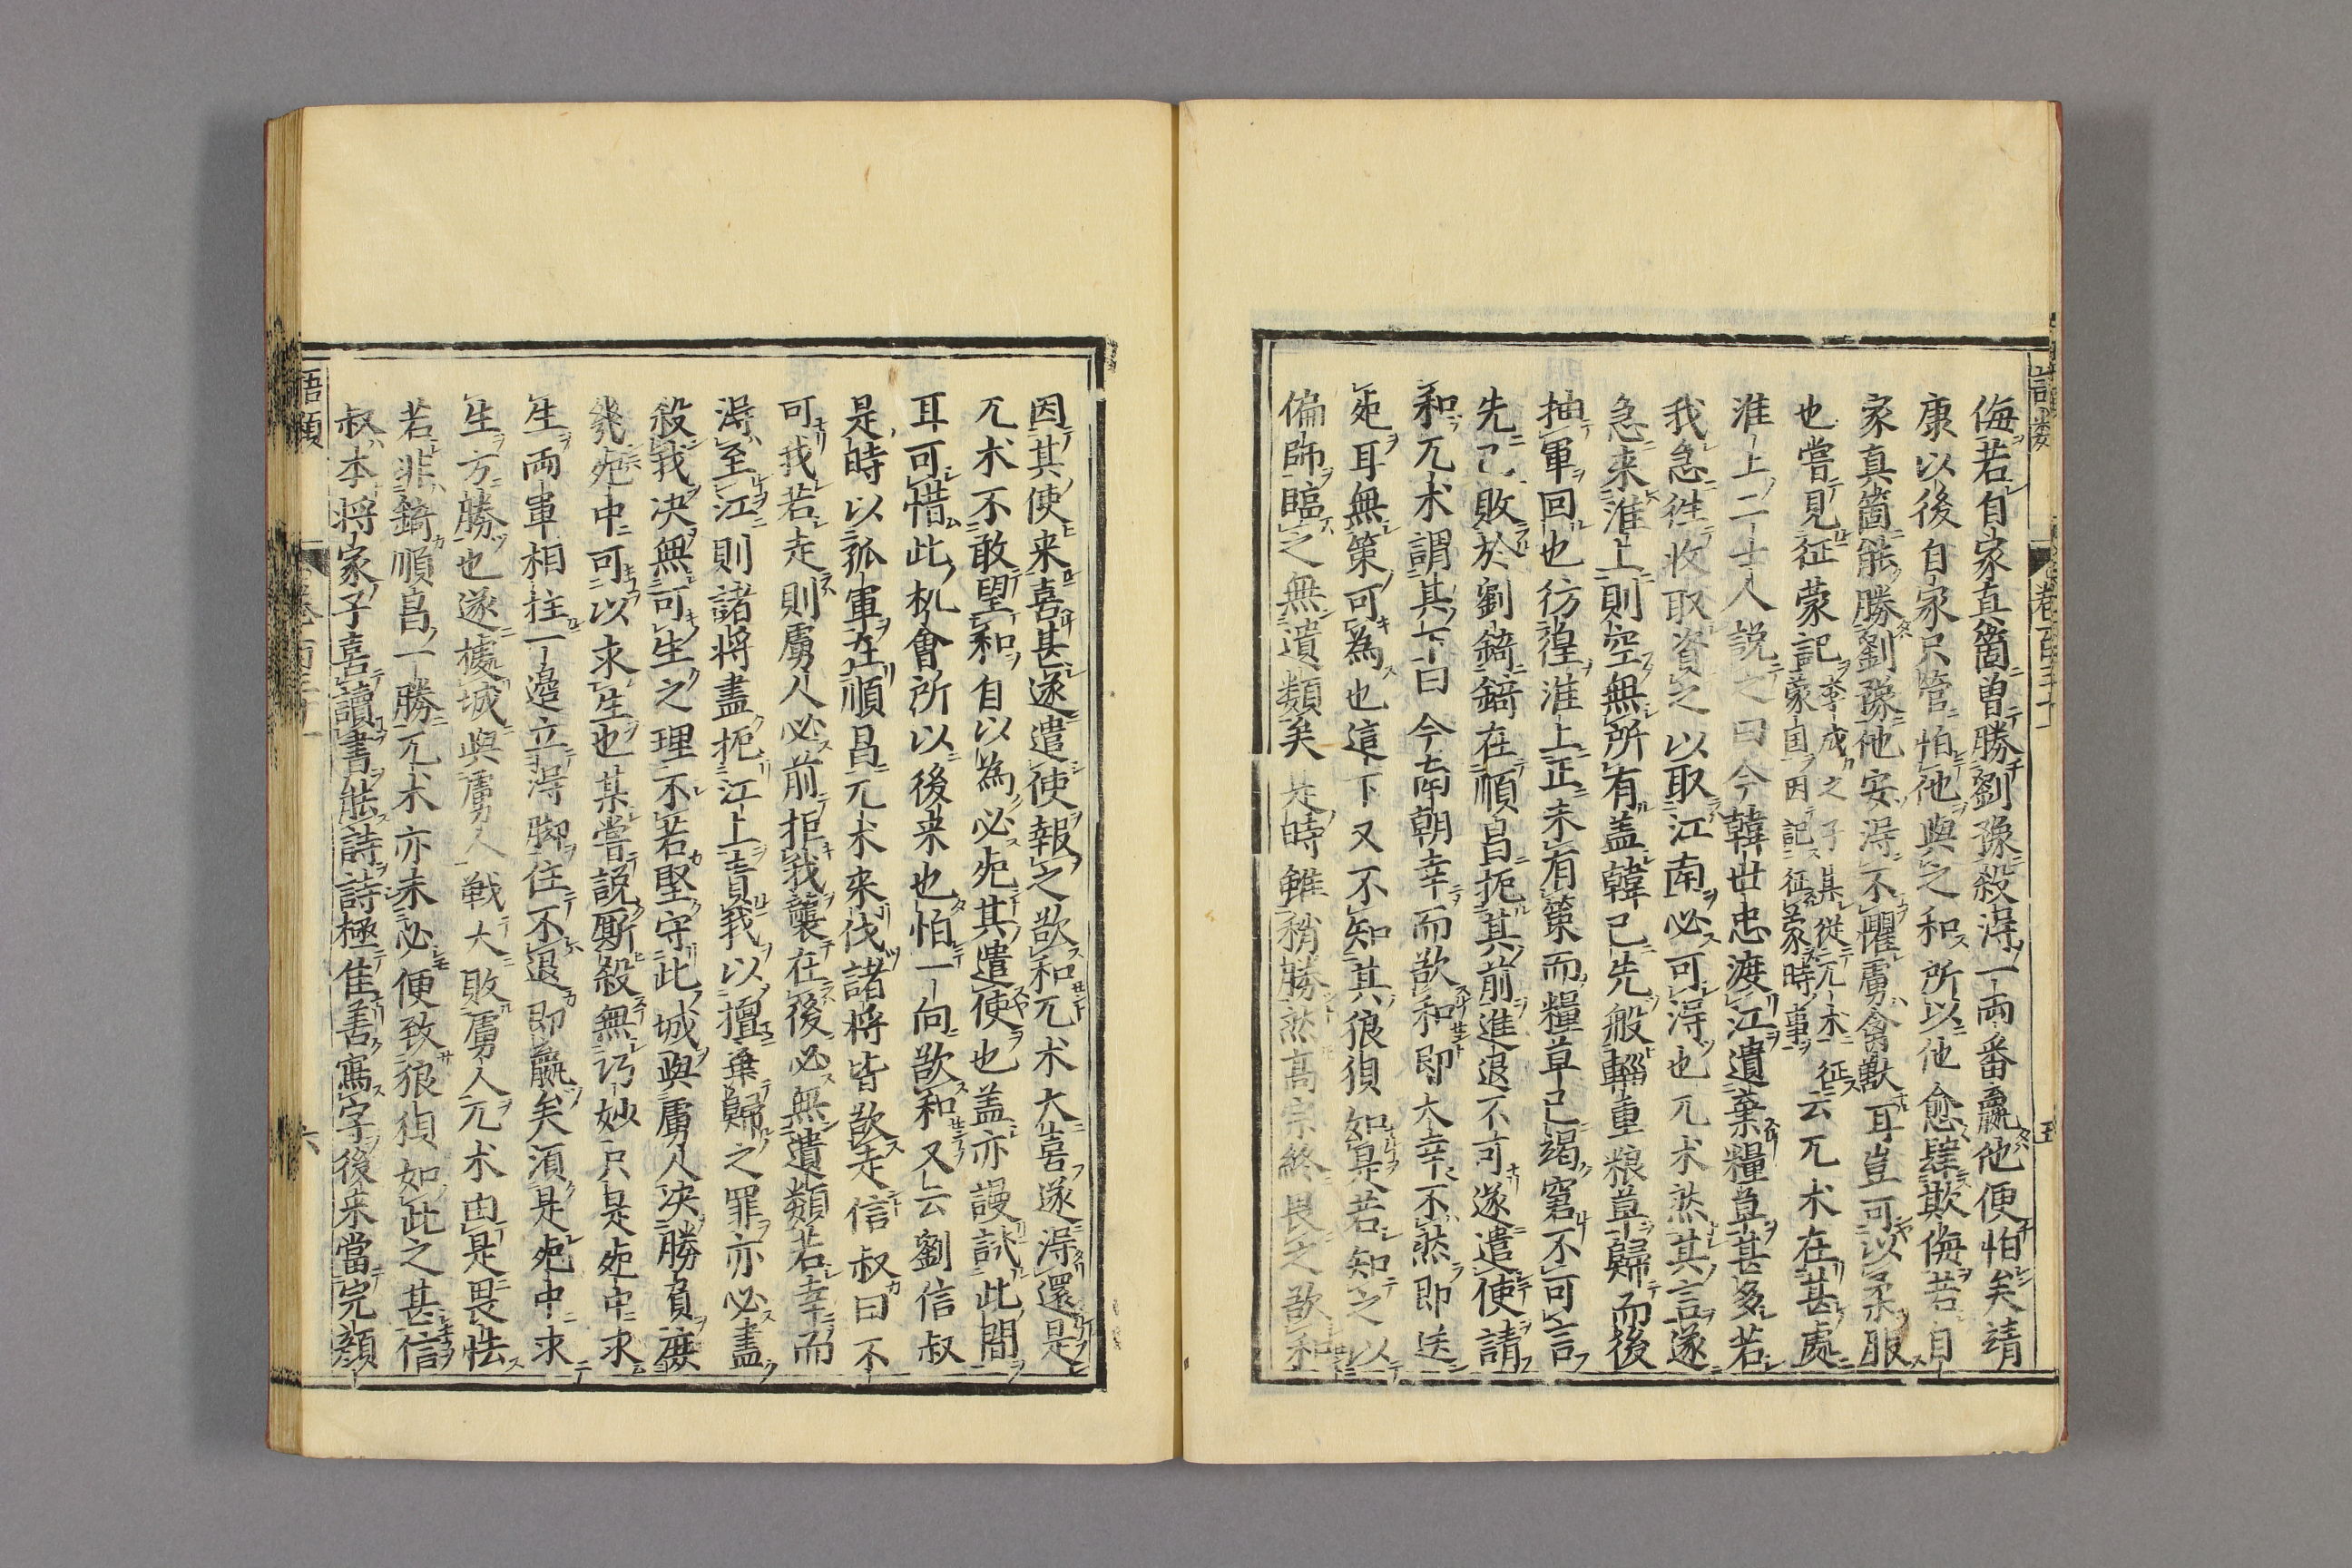 侮若自家真箇曽勝劉豫殺得一兩番贏他便怕矣靖
康以後自家只管怕他與之和所以他愈肆欺侮若自
家真箇能勝劉豫他安得不懼虜禽獸耳豈可以柔服
也嘗見征蒙記李成之子某從兀术征蒙國因記征蒙時事云兀术在甚處
淮上二士人説之曰今韓世忠渡江遺棄糧草甚多若
我急往收取資之以取江南必可得也兀术然其言遂
急来淮上則空無所有盖韓已先般輜重粮草歸而後
抽軍回也彷徨淮上正未有策而糧草已竭窘不可言
先已敗於劉錡錡在順昌扼其前進退不可遂遣使請
和兀术謂其下曰今南朝幸而欲和即大幸不然即送
死耳無策可為也這下又不知其狼狽如是若知之以
偏師臨之無遺類矣是時雖稍勝然高宗終畏之欲和
因其使来喜甚遂遣使報之欲和兀术大喜遂得還是
兀术不敢望和自以為必死其遣使也盖亦謾試此間
耳可惜此机會所以後来也怕一向欲和又云劉信叔
是時以孤軍在順昌兀术来伐諸将皆欲走信叔曰不
可我若走則虜人必前拒我襲在後必無遺類若幸而
得至江則諸将盡扼江上責我以擅棄歸之罪亦必盡
殺我决無可生之理不若堅守此城與虜人决勝負庻
幾死中可以求生也某嘗説厮殺無巧妙只是死中求
生兩軍相拄一邉立得脚住不退即贏矣須是死中求
生方勝也遂據城與虜人戦大敗虜人兀术由是畏怯
若非錡順昌一勝兀术亦未必便致狼狽如此之甚信
叔本将家子喜讀書能詩詩極佳善寫字後来當完顏
語類
六
五